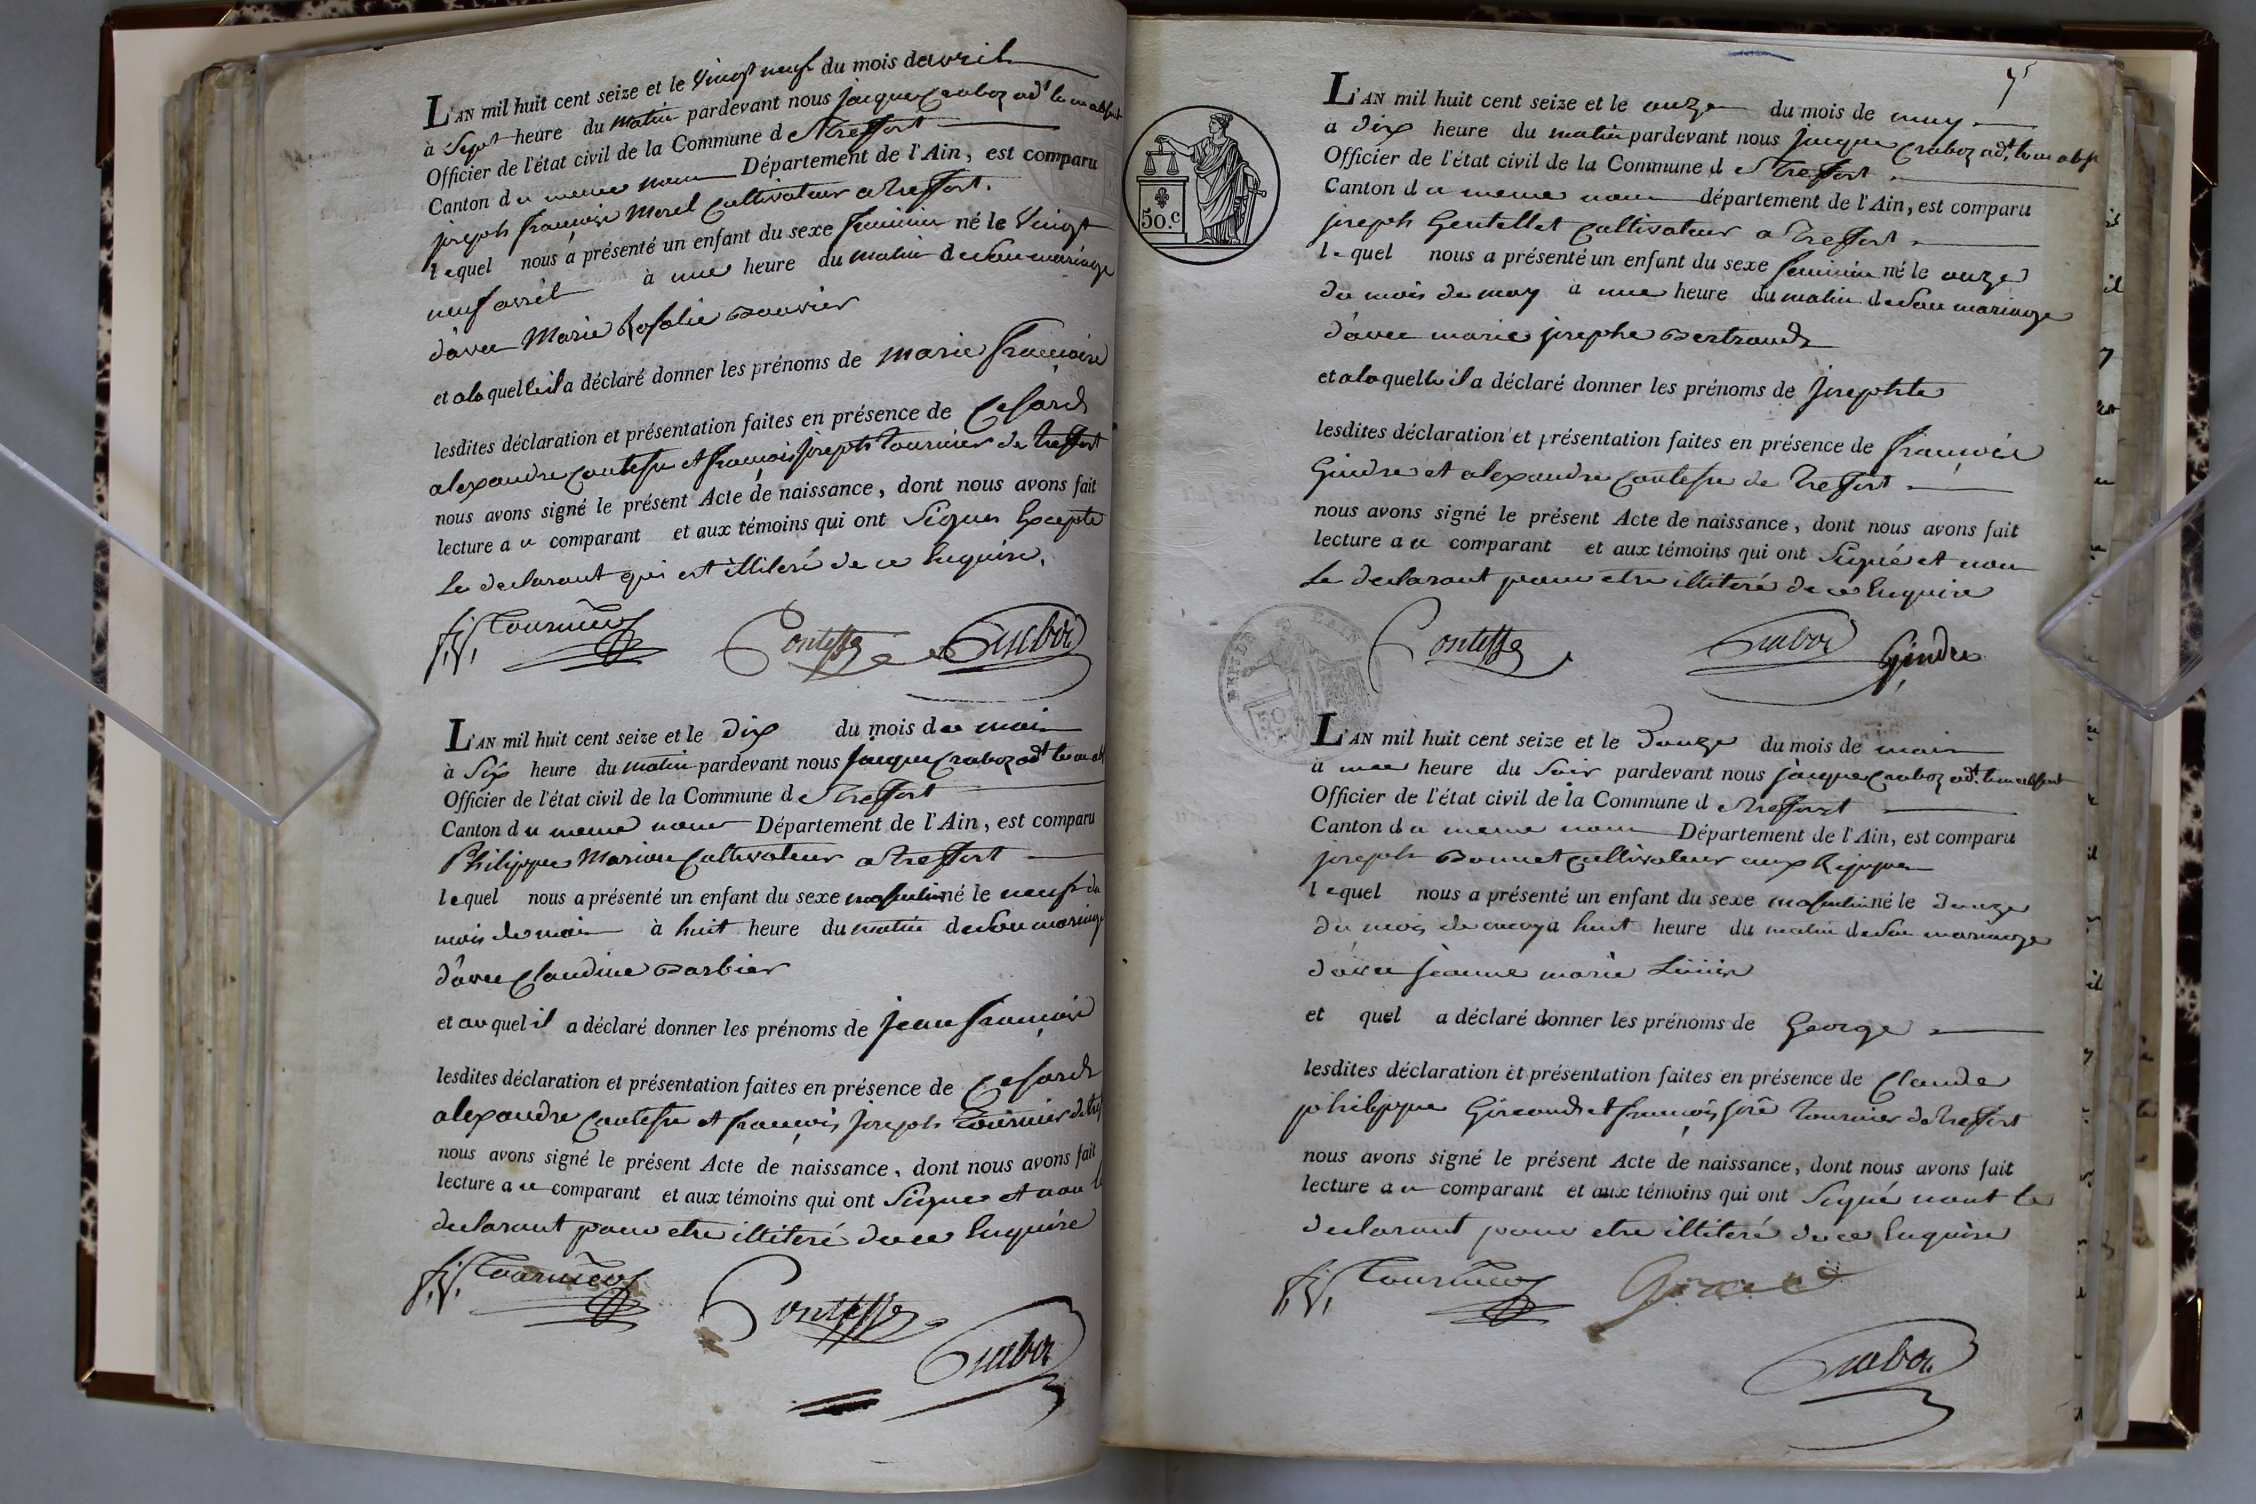 L'AN mil huit cent seize et le vingt neuf du mois d'avril
à Sept heure du matin pardevant nous jacque Craboz adt le m abst
Officier de l'état civil de la Commune de Treffort
Canton du meme nom Département de l'Ain, est comparu
joseph françois Morel Cultivateur a Treffort.
lequel nous a présenté un enfant du sexe feminin né le Vingt
neuf avril à une heure du matin de son mariage
d'avec Marie Rosalie Bouvier
et a laquelle il a déclaré donner les prénoms de marie françoise
lesdites déclaration et présentation faites en présence de Cesard
alexandre Contesse et françois joseph tournier de treffort
nous avons signé le présent Acte de naissance, dont nous avons fait
lecture au comparant et aux témoins qui ont Signes Excepté
Le declarant qui est illiteré de ce Enquire.
f. j. Tournier Contesse Craboz
L'AN mil huit cent seize et le dix du mois de mai
à Six heure du matin pardevant nous jacque Craboz adt le m abt
Officier de l'état civil de la Commune de Treffort
Canton du meme nom Département de l'Ain, est comparu
Philippe Marion Cultivateur a treffort
lequel nous a présenté un enfant du sexe masculin né le neuf du
mois de mai à huit heure du matin de son mariage
d'avec Claudine Barbier
et au quel il a déclaré donner les prénoms de jean françois
lesdites déclaration et présentation faites en présence de Cesard
alexandre Contesse et françois joseph tournier de tref
nous avons signé le présent Acte de naissance, dont nous avons fait
lecture au comparant et aux témoins qui ont Signes et non le
declarant pour etre illiteré de ce Enquire
f. j. Tournier Contesse
Craboz
L'AN mil huit cent seize et le onze du mois de may
à dix heure du matin pardevant nous jacque Craboz adt. le m abst
Officier de l'état civil de la Commune de Treffort
Canton du meme nom département de l'Ain, est comparu
50.c
joseph Gentellet Cultivateur a treffort
lequel nous a présenté un enfant du sexe feminin né le onze
du mois de may à une heure du matin de son mariage
d'avec marie josephe Bertrand
et a laquelle il a déclaré donner les prénoms de josephte
lesdites déclaration et présentation faites en présence de françois
Gindre et alexandre Contesse de treffort
nous avons signé le présent Acte de naissance, dont nous avons fait
lecture au comparant et aux témoins qui ont Signé et non
Le declarant pour etre illiteré de ce Enquire
Contesse Craboz Gindre
50
L'AN mil huit cent seize et le douze du mois de mai
à une heure du Soir pardevant nous jacque Craboz adt. le m absent
Officier de l'état civil de la Commune de treffort
Canton du meme nom Département de l'Ain, est comparu
joseph Bonnet cultivateur aux Rippes
lequel nous a présenté un enfant du sexe masculin né le douze
du mois de may à huit heure du matin de son mariage
d'avec jeanne marie
et quel a déclaré donner les prénoms de George
lesdites déclaration et présentation faites en présence de Claude
philippe Giroud et françois jph tournier de treffort
nous avons signé le présent Acte de naissance, dont nous avons fait
lecture au comparant et aux témoins qui ont Signé nont le
declarant pour etre illiteré de ce Enquire
f. j. Tournier
Craboz